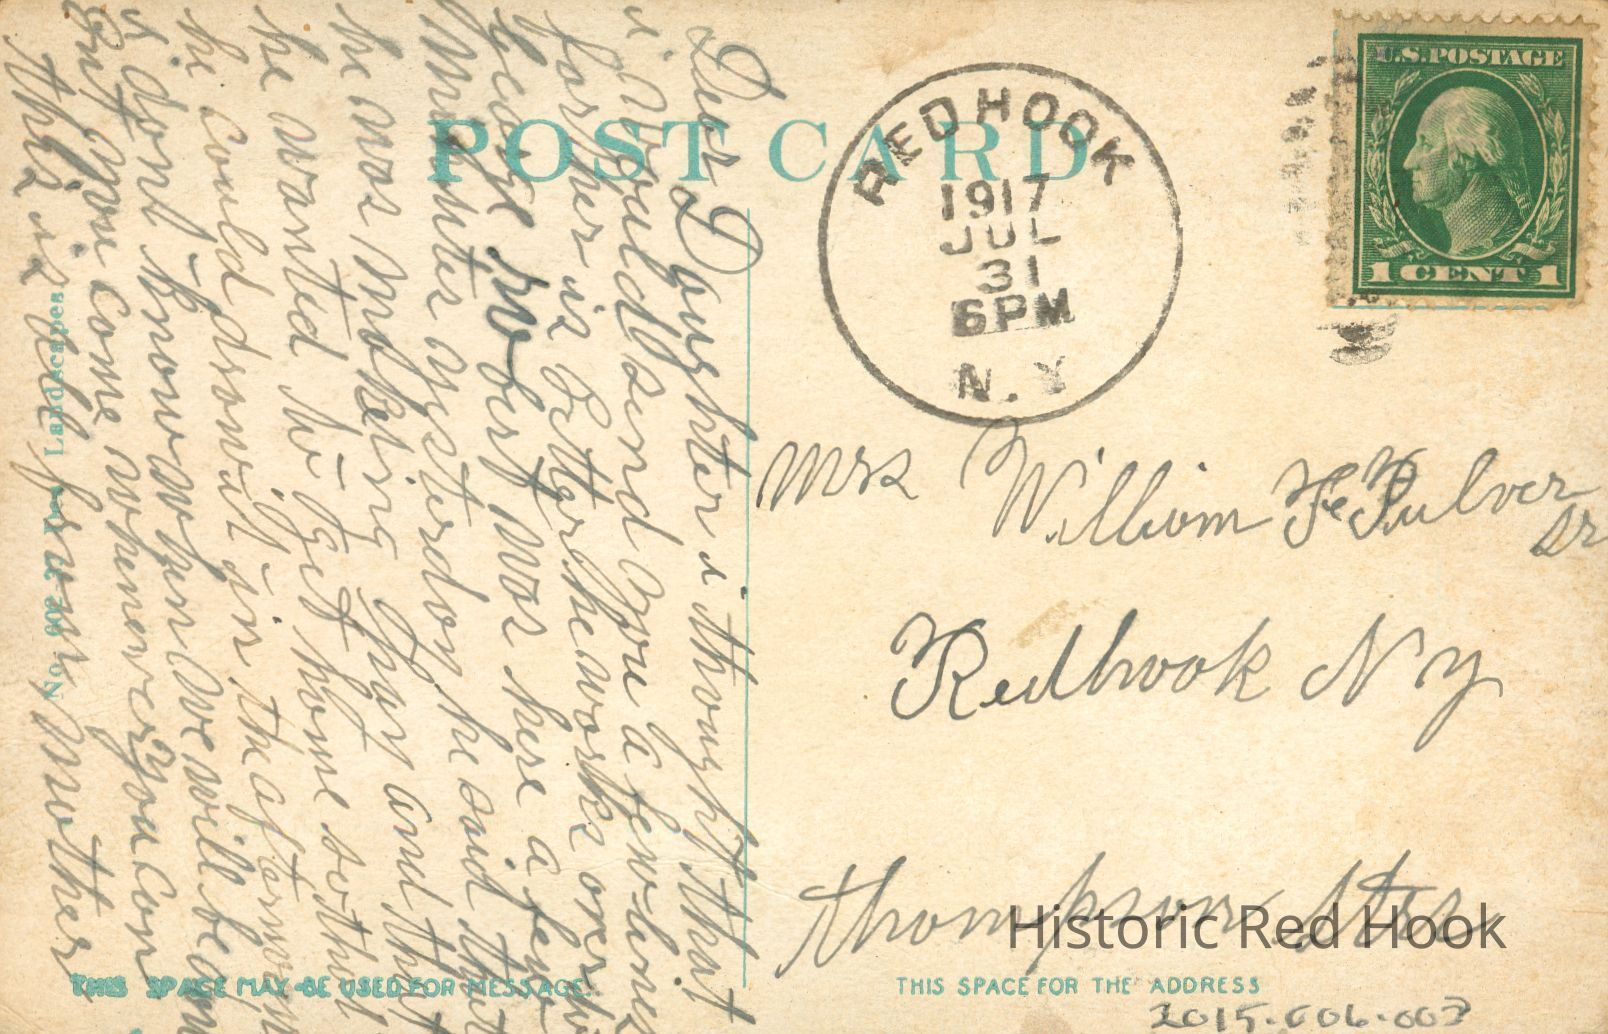 POST CARD
RED HOOK
1917
JUL
31
6 PM
N.Y.
U.S. POSTAGE
1 CENT 1
Dear Daughter i thought that
i would send you a few lines
father is better he works over
george robert was here a few
minutes yesterday he said that
he was making hay and that
he wanted to get home so that
he could draw it in the afternoon
i dont know when we will be
But you come whenever you can
this is all from Mother
Mrs William Fe Pulver
Sr
Redhook N Y
thompson Str
No. 602
Landscapes
THIS SPACE MAY BE USED FOR MESSAGE.
THIS SPACE FOR THE ADDRESS
Historic Red Hook
2015.006.003